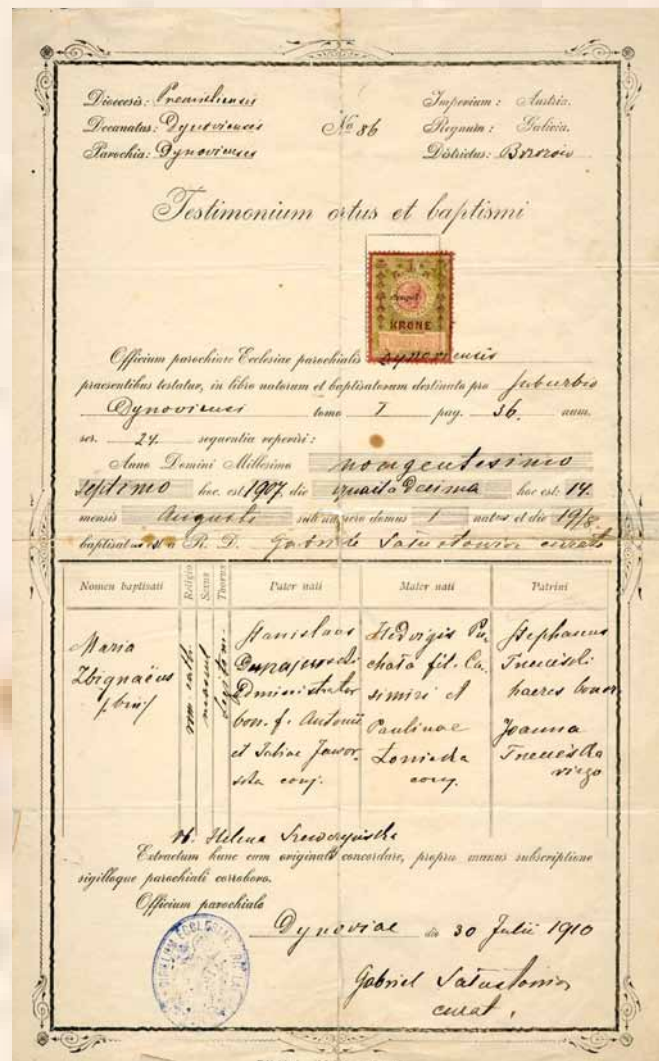 Dioecesis: Premisliensis
Decanatus: Dynoviensis
Parochia: Dynoviensis
No 86
Imperium: Austria.
Regnum: Galicia.
Districtus:
Testimonium ortus et baptismi
1
KRONE
Officium parochiare Ecclesiae parochialis Dynoviensis
praesentibus testatur, in libro natorum et baptisatorum destinato pro Suburbio
Dynoviensi tomo I pag. 36. num.
ser. 24. sequentia reperiri:
Anno Domini Millesimo nongentesimo
septimo hoc. est 1907, die quarta decima hoc est: 14.
mensis Augusti sub numero domus 1 natus et die 19/8.
baptisatus est a R. D. curato
Nomen baptisati
Religio
Sexus
Thorus
Pater nati
Mater nati
Patrini
Maria
Zbignaëus
rom. cath.
mascul
legitim.
Stanislaus
administrator
bon. f. Antonii
et
conj.
Hedvigis Pu-
chała fil. Ca-
simiri et
Paulinae
conj.
Stephanus
haeres bonor.
Joanna
virgo
Helena
Extractum hunc cum originali concordare, propria manus subscriptione
sigilloque parochiali corroboro.
Officium parochiale
Dynoviae die 30 Julii 1910
Gabriel
curat.